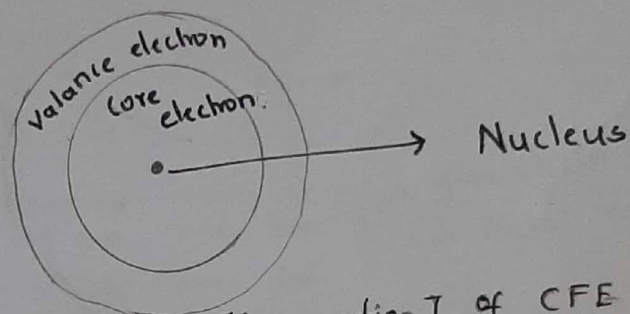 valance electron
core
electron.
Nucleus
of CFE